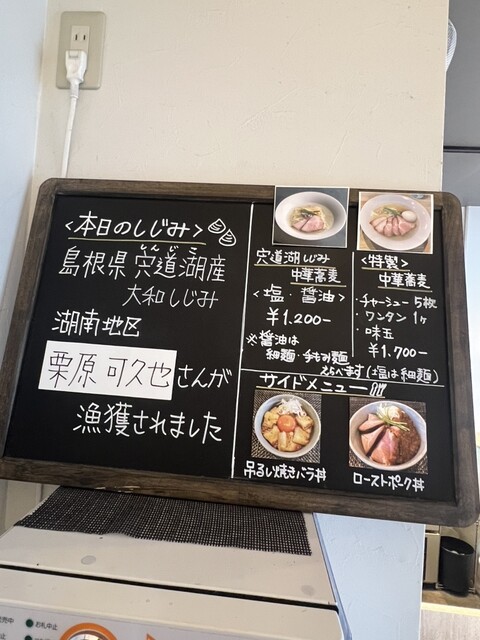 <本日のしじみ>
しんじこ
島根県 宍道湖産
大和しじみ
湖南地区
栗原 可久也さんが
漁獲されました
宍道湖しじみ
中華蕎麦
<塩・醤油>
¥1.200-
※醤油は
細麺・手もみ麺
えらべます(塩は細麺)
<特製>
中華蕎麦
・チャーシュー5枚
・ワンタン1ヶ
・味玉
¥1.700-
サイドメニュー
吊るし焼きバラ丼
ローストポーク丼
お札中止